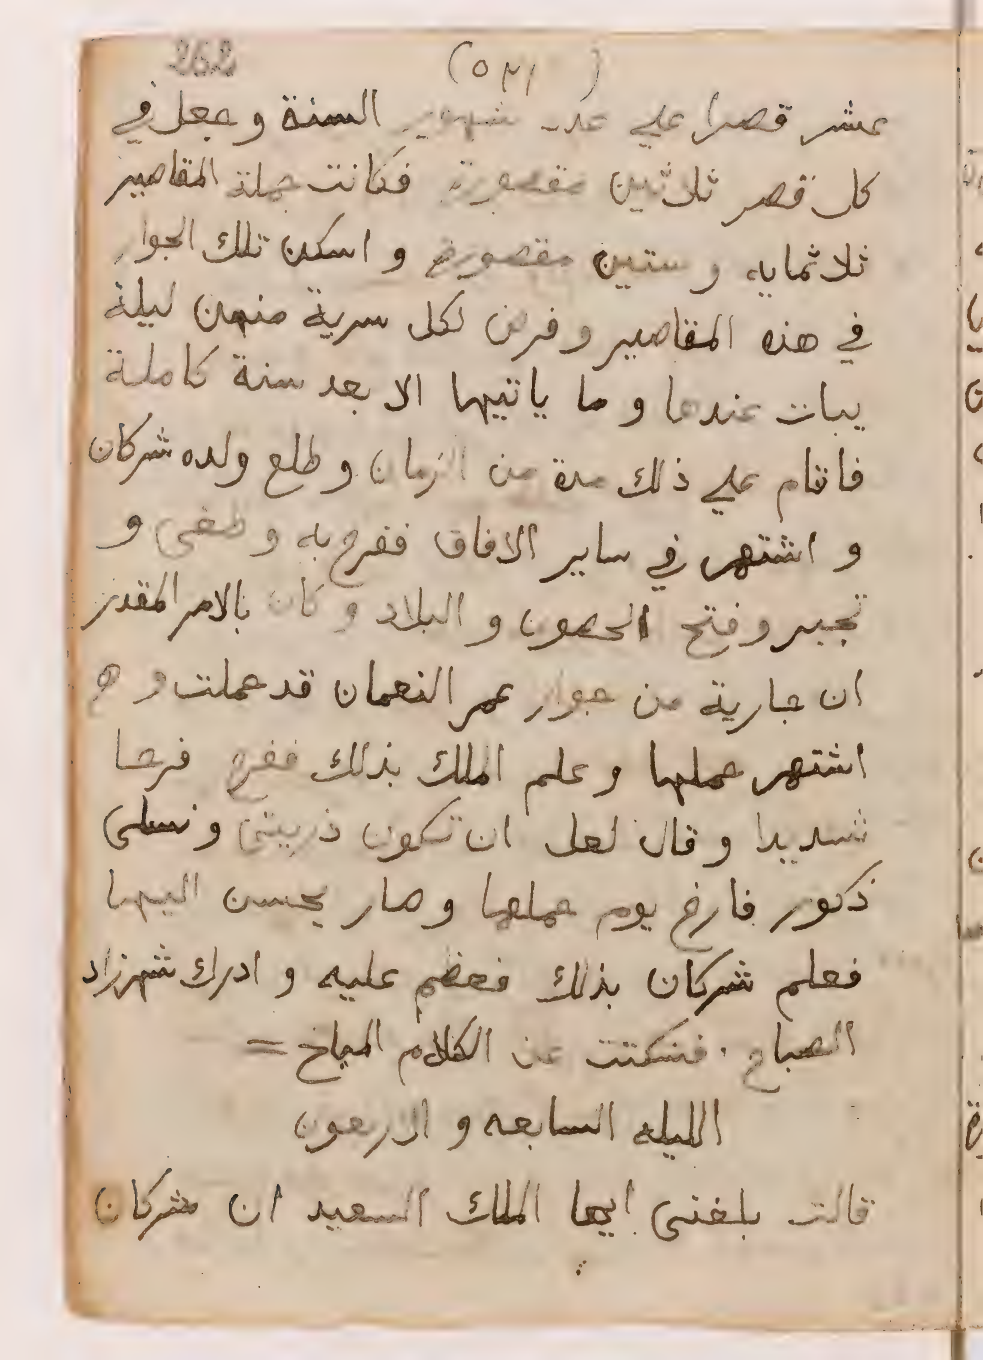 262
(٥٢١)
عشر قصرا علي عدد شهور السنة وجعل في
كل قصر ثلاثين مقصورة فكانت جملة المقاصير
ثلاثمايه وستين مقصورة واسكن تلك الجوار
في هذه المقاصير وفرض لكل سرية منهن ليلة
يبات عندها وما ياتيها الا بعد سنة كاملة
فاقام علي ذلك مدة من الزمان وطلع ولده شركان
واشتهر في ساير الافاق ففرح به وطغى و
تجبر وفتح الحصون والبلاد وكان بالامر المقدر
ان جارية من جوار عمر النعمان قد حملت و
اشتهر حملها وعلم الملك بذلك ففرح فرحا
شديدا وقال لعل ان تكون ذريتى ونسلى
ذكور فارخ يوم حملها وصار يحسن اليها
فعلم شركان بذلك فعظم عليه وادرك شهرزاد
الصباح فسكتت عن الكلام المباح =
الليله السابعه والاربعون
قالت بلغنى ايها الملك السعيد ان شركان